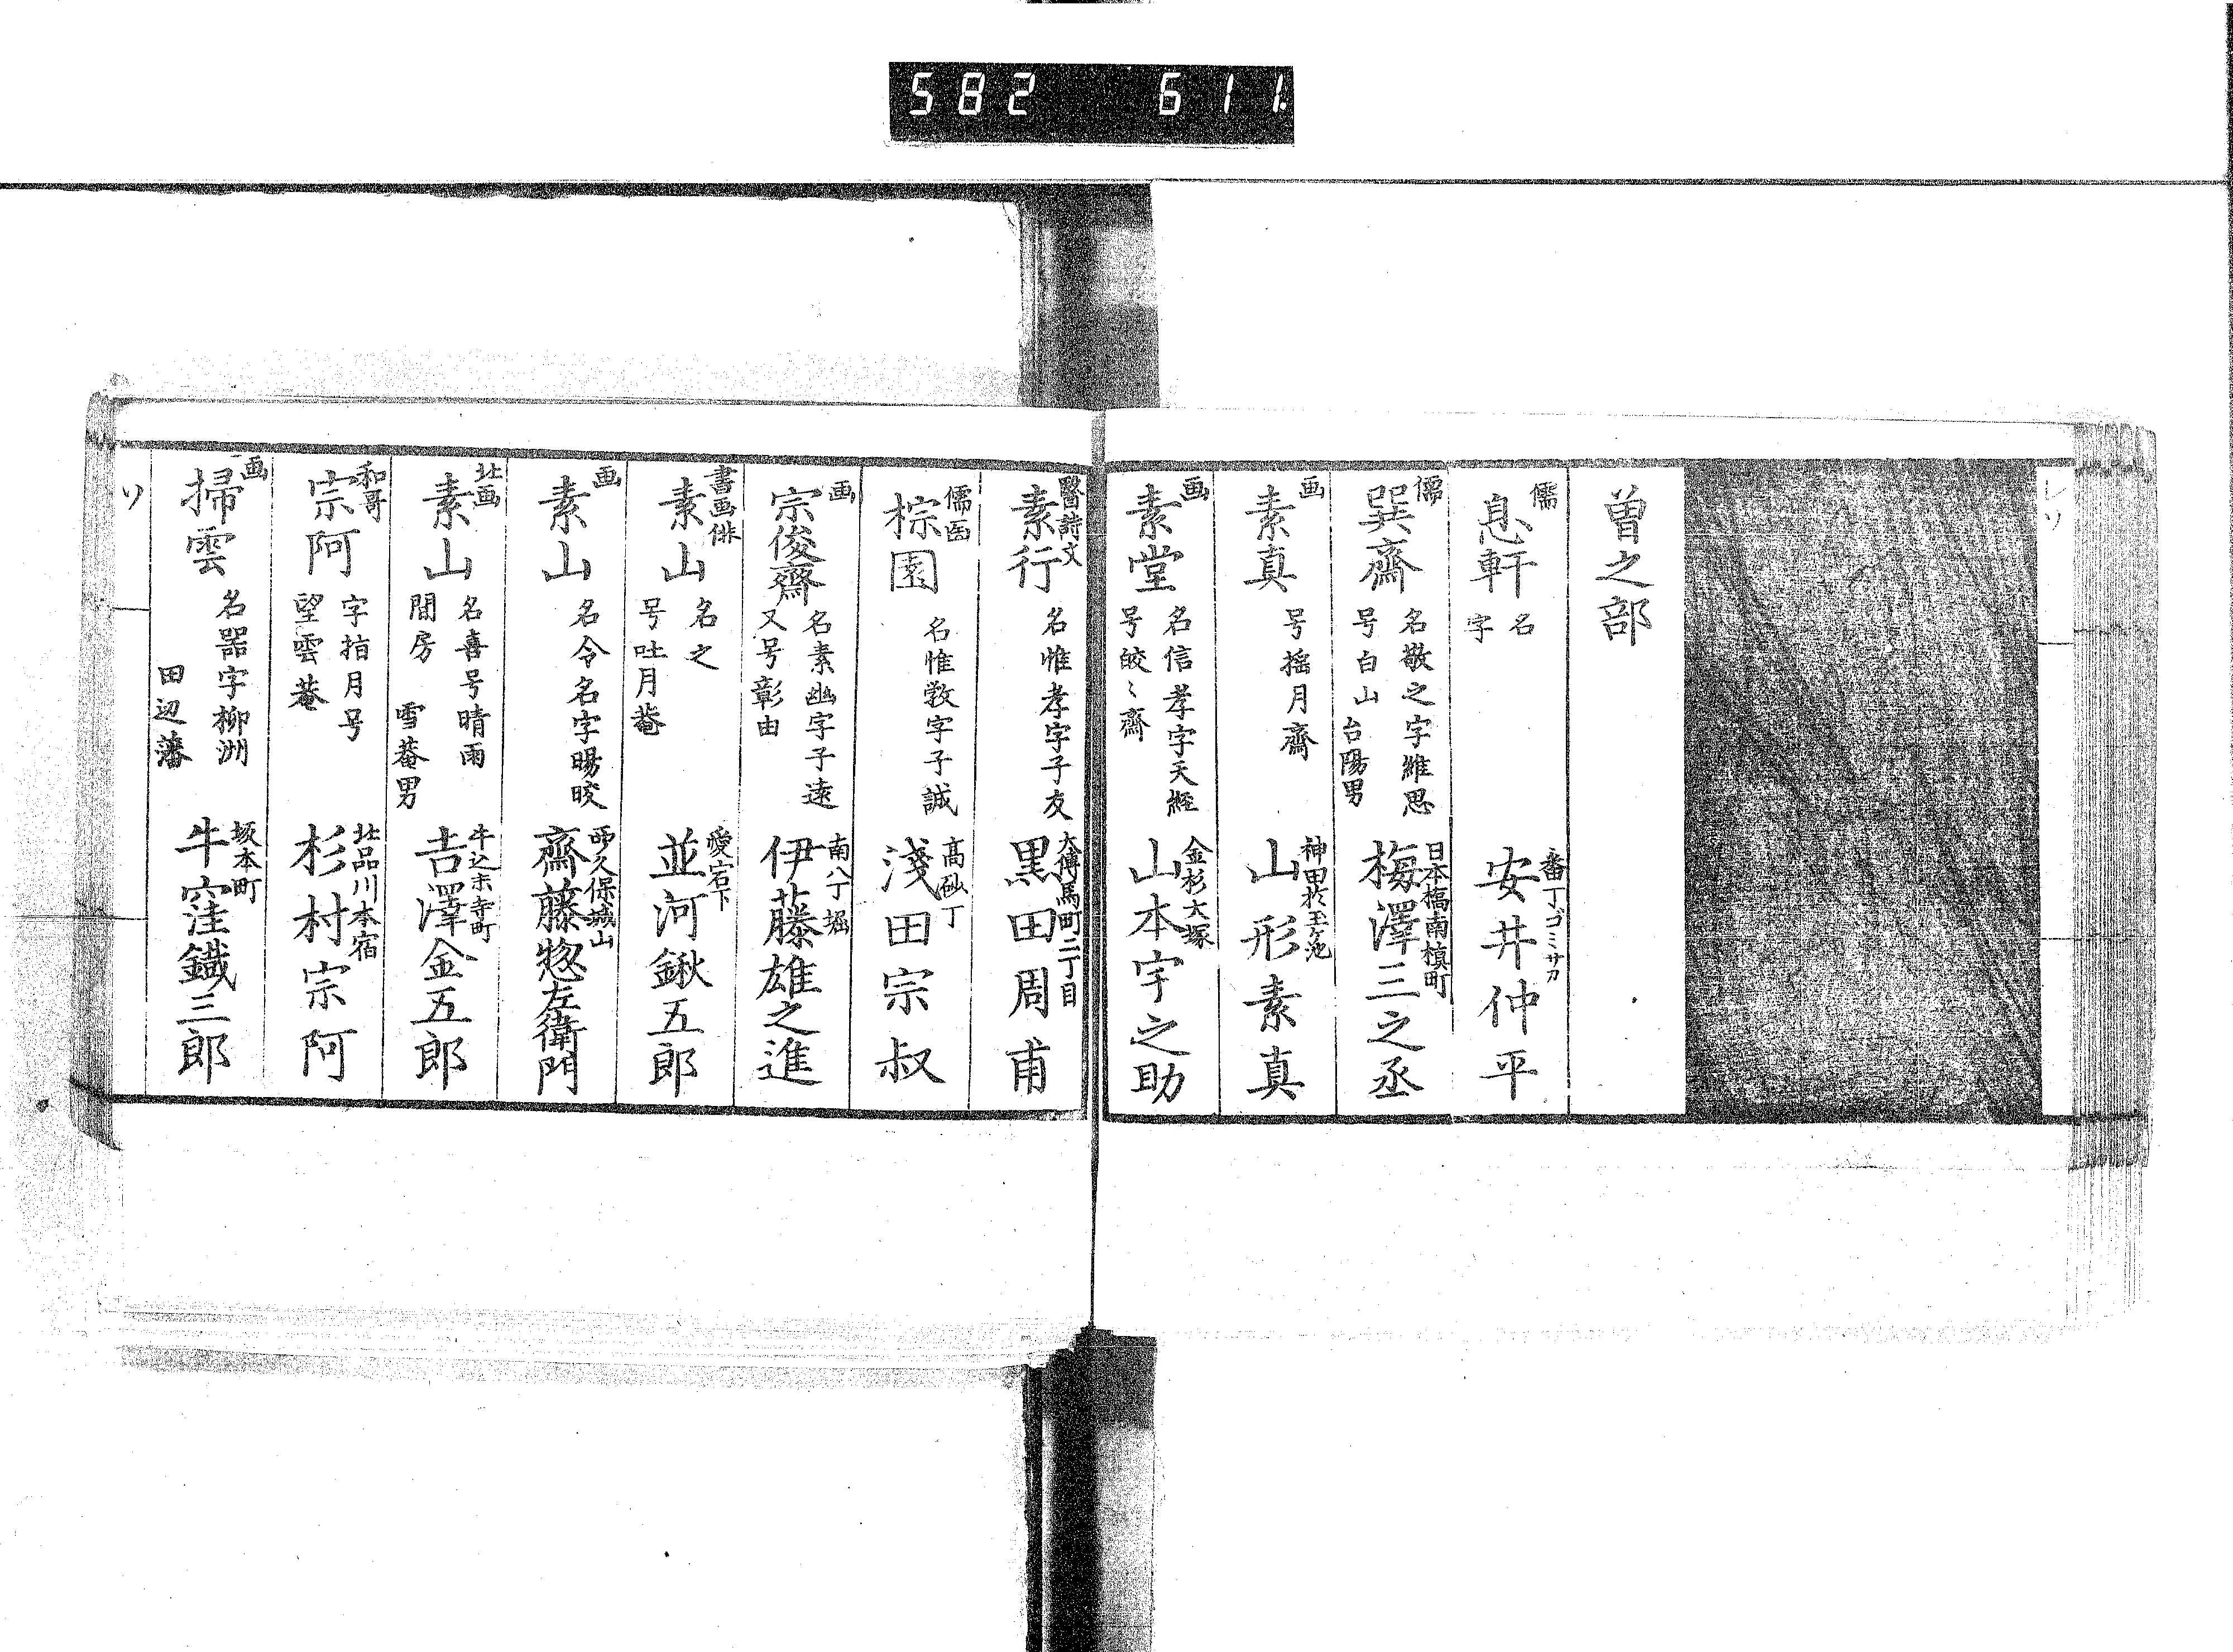 582 611.
レソ
曽之部
儒 息軒 名 字 番丁ゴミサカ 安井仲平
儒 巽齋 名敬之字維思 号白山 台陽男 日本橋南槙町 梅澤三之丞
画 素真 号揺月齋 神田於玉ケ池 山形素真
画 素堂 名信孝字天經 号皎〻齋 金杉大塚 山本宇之助
醫詩文 素行 名惟孝字子友 大傳馬町二丁目 黒田周甫
儒医 棕園 名惟敎字子誠 髙砂丁 淺田宗叔
画 宗俊齋 名素幽字子遠 又号彰由 南八丁堀 伊藤雄之進
書画俳 素山 名之 号吐月菴 愛宕下 並河鍬五郎
画 素山 名令名字暘皎 久保城山 齋藤惣左衛門
北画 素山 名喜号晴雨 間房 雪菴男 牛込末寺町 吉澤金五郎
和哥 宗阿 字指月号 望雲菴 北品川本宿 杉村宗阿
画 掃雲 名器字柳洲 田辺藩 坂本町 牛窪鐵三郎
ソ